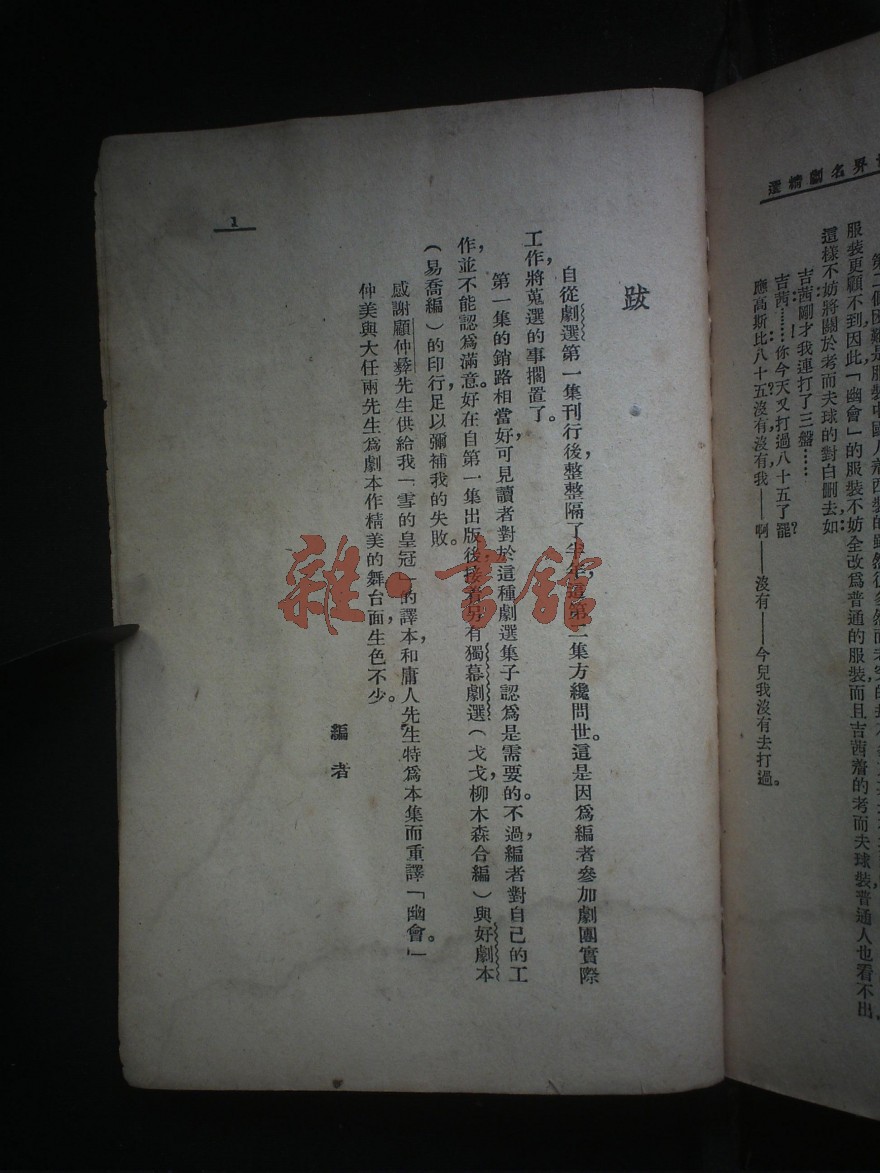 世界名劇精選
服裝更顧不到因此「幽會」的服裝不妨全改爲普通的服裝而且吉茜着的考而夫球裝普通人也看不出，
這樣不妨將關於考而夫球的對白删去如：
吉茜剛才我連打了三盤……
……！
吉茜……你今天又打過八十五了罷？
應高斯比八十五沒有沒有我——啊——沒有——今兒我沒有去打過。
跋
自從劇選第一集刊行後，整整隔了半年，這第二集方纔問世。這是因爲編者參加劇團實際
工作，將蒐選的事擱置了。
第一集的銷路相當好，可見讀者對於這種劇選集子認爲是需要的。不過，編者對自己的工
作，並不能認爲滿意。好在自第一集出版後，接着另有獨幕劇選（戈戈，柳木森合編）與好劇本
（易喬編）的印行，足以彌補我的失敗。
感謝顧仲彝先生供給我「雪的皇冠」的譯本，和庸人先生特爲本集而重譯「幽會。」
仲美與大任兩先生爲劇本作精美的舞台面，生色不少。
編者
1
雜·書館